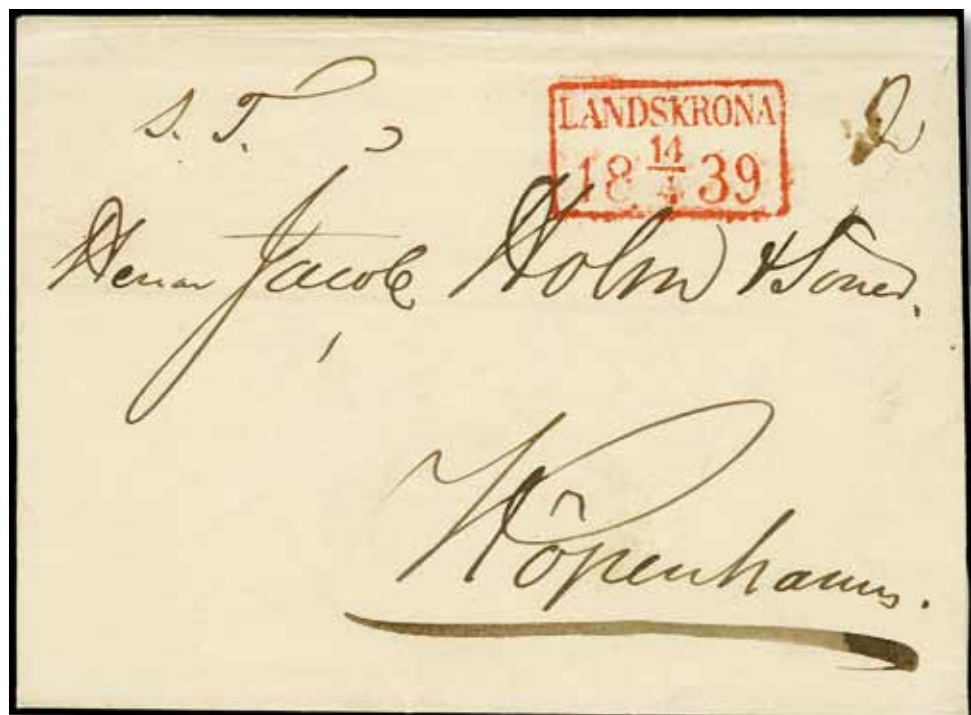 S. T.
LANDSKRONA
18 14/4 39
Herrar Jacob Holm & Söner.
Köpenhamn.